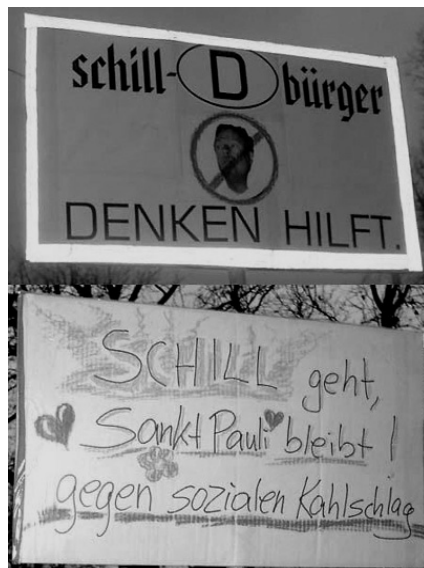 schill- D bürger
DENKEN HILFT.
SCHILL geht,
Sankt Pauli bleibt!
gegen sozialen Kahlschlag